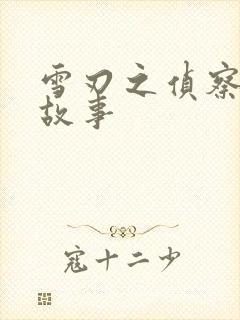 雪刃之偵察
故事
寇十二少